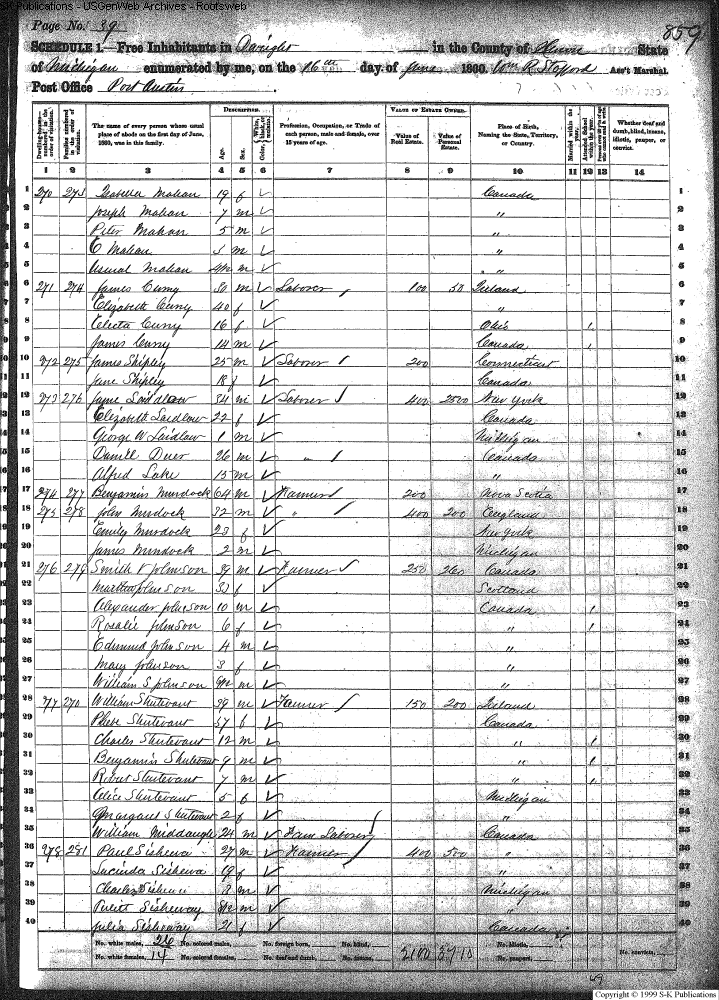 S-K Publications - USGenWeb Archives - Rootsweb
Page No. 39
859
SCHEDULE 1.—Free Inhabitants in Dwight in the County of Huron State
of Michigan enumerated by me, on the 16th day of June 1860. Wm R Stafford Ass't Marshal.
Post Office Port Austin
Dwelling-houses—numbered in the order of visitation.
Families numbered in the order of visitation.
The name of every person whose usual place of abode on the first day of June, 1860, was in this family.
DESCRIPTION.
Age.
Sex.
Color, White, black, or mulatto.
Profession, Occupation, or Trade of each person, male and female, over 15 years of age.
VALUE OF ESTATE OWNED.
Value of Real Estate.
Value of Personal Estate.
Place of Birth, Naming the State, Territory, or Country.
Married within the year.
Attended School within the year.
Whether deaf and dumb, blind, insane, idiotic, pauper, or convict.
1 2 3 4 5 6 7 8 9 10 11 12 13 14
1 270 273 Isabella Mahan 19 f ✓ Canada 1
2 Joseph Mahan 7 m ✓ " 2
3 Peter Mahan 5 m ✓ " 3
4 C Mahan 3 m ✓ " 4
5 Mahan m ✓ " 5
6 271 274 James Curry 50 m ✓ Laborer / 100 50 Ireland 6
7 Elizabeth Curry 40 f ✓ " 7
8 Electa Curry 16 f ✓ Ohio / 8
9 James Curry 14 m ✓ Canada / 9
10 272 275 James Shipley 25 m ✓ Laborer / 200 Connecticut 10
11 Jane Shipley 18 f ✓ Canada 11
12 273 276 Laidlaw 34 m ✓ Laborer / 400 2500 New York 12
13 Elizabeth Laidlaw 22 f ✓ Canada 13
14 George W Laidlaw 1 m ✓ Michigan 14
15 Daniel 26 m ✓ " / Canada 15
16 Alfred Lake 15 m ✓ " 16
17 274 277 Benjamin Murdock 64 m ✓ Farmer / 200 Nova Scotia 17
18 275 278 John Murdock 32 m ✓ " / 400 200 England 18
19 Emily Murdock 23 f ✓ New York 19
20 James Murdock 2 m ✓ Michigan 20
21 276 279 Smith V Johnson 39 m ✓ Farmer / 250 260 Canada 21
22 Martha Johnson 33 f ✓ Scotland 22
23 Alexander Johnson 10 m ✓ Canada / 23
24 Rosalie Johnson 6 f ✓ " / 24
25 Edmund Johnson 4 m ✓ " 25
26 Mary Johnson 3 f ✓ " 26
27 William S Johnson m ✓ " 27
28 277 270 William Shutevant 39 m ✓ Farmer / 150 200 Ireland 28
29 Phebe Shutevant 37 f ✓ Canada 29
30 Charles Shutevant 12 m ✓ " / 30
31 Benjamin Shutevant 9 m ✓ " / 31
32 Robert Shutevant 7 m ✓ " / 32
33 Alice Shutevant 5 f ✓ Michigan 33
34 Margaret Shutevant 2 f ✓ " 34
35 William Middaugh 24 m ✓ Farm Laborer / Canada 35
36 278 281 Paul Sisheva 27 m ✓ Farmer / 400 500 " 36
37 Lucinda Sisheva 19 f ✓ " 37
38 Charles m ✓ Michigan 38
39 Sisheway m ✓ " 39
40 Julia Sisheway 21 f ✓ Canada 40
No. white males, 26 No. colored males, No. foreign born, No. blind,
No. white females, 14 No. colored females, No. deaf and dumb, No. insane,
2100 3710
No. idiotic,
No. paupers,
No. convicts,
Copyright © 1999 S-K Publications